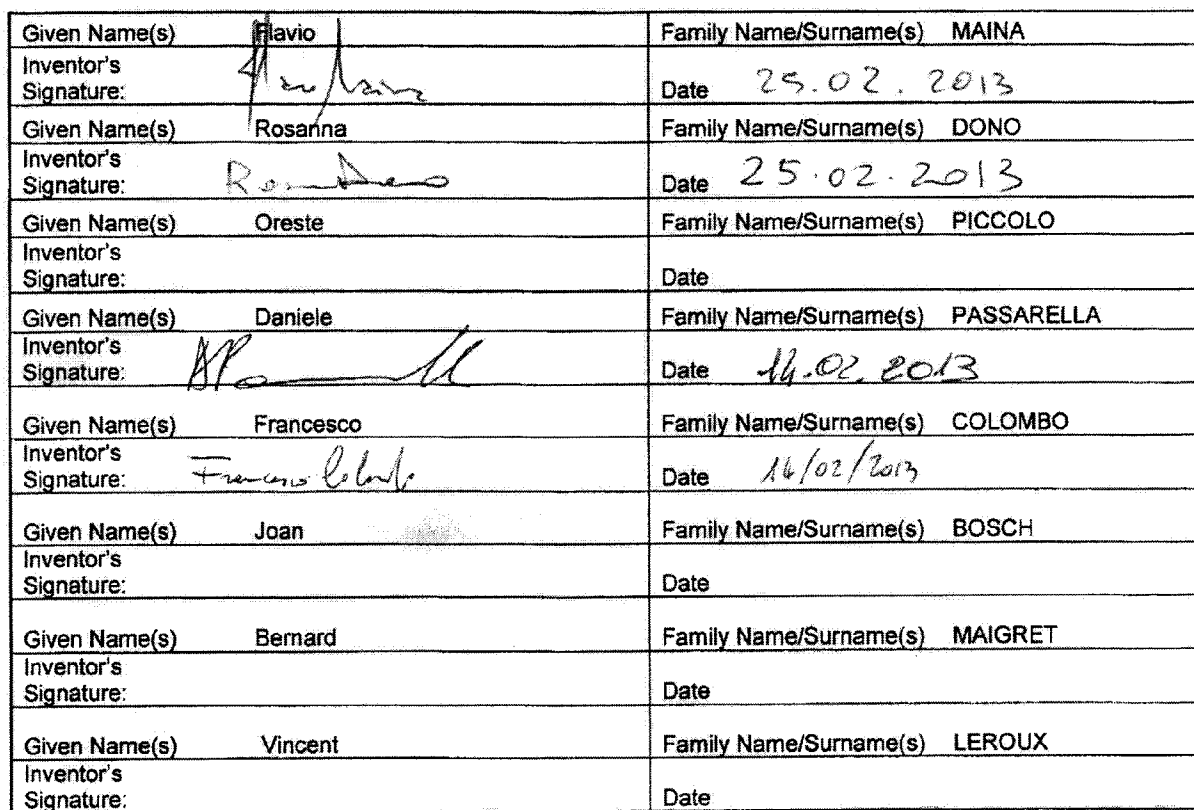 Given Name(s) Flavio Family Name/Surname(s) MAINA
Inventor's
Signature: Date 25.02.2013
Given Name(s) Rosanna Family Name/Surname(s) DONO
Inventor's
Signature: Date 25.02.2013
Given Name(s) Oreste Family Name/Surname(s) PICCOLO
Inventor's
Signature: Date
Given Name(s) Daniele Family Name/Surname(s) PASSARELLA
Inventor's
Signature: Date 14.02.2013
Given Name(s) Francesco Family Name/Surname(s) COLOMBO
Inventor's
Signature: Francesco Colombo Date 14/02/2013
Given Name(s) Joan Family Name/Surname(s) BOSCH
Inventor's
Signature: Date
Given Name(s) Bernard Family Name/Surname(s) MAIGRET
Inventor's
Signature: Date
Given Name(s) Vincent Family Name/Surname(s) LEROUX
Inventor's
Signature: Date